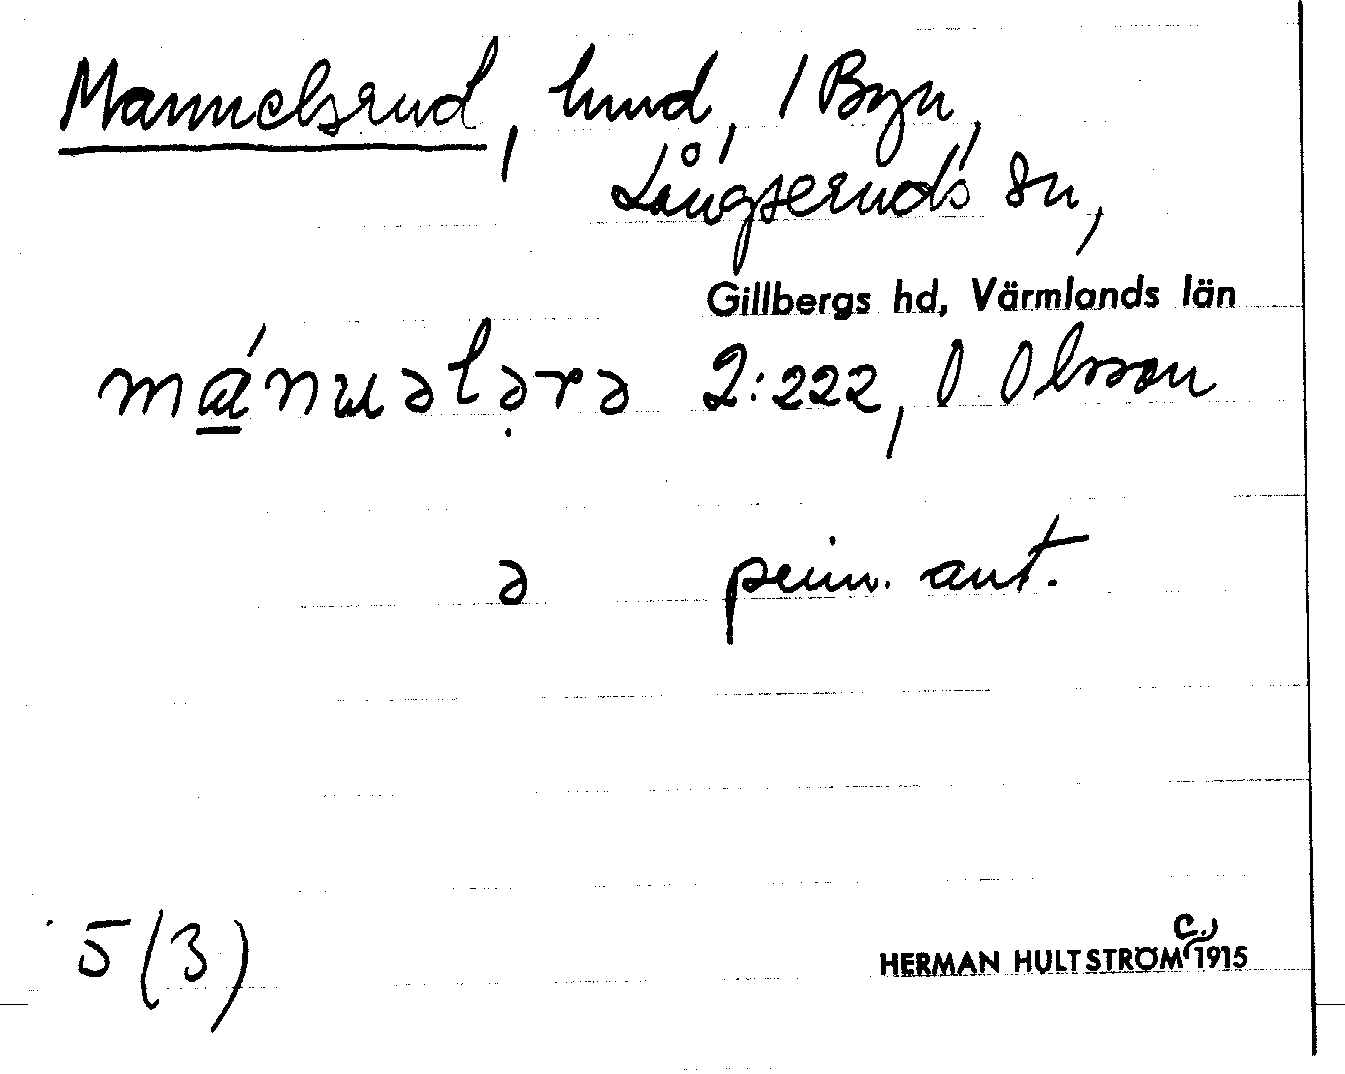 Mannelsrud, hmd, 1 Byn,
Långseruds sn,
Gillbergs hd, Värmlands län
mánuələrə 2:222, O Olsson
ə prim. ant.
5 (3)
HERMAN HULTSTRÖM (c.) 1915